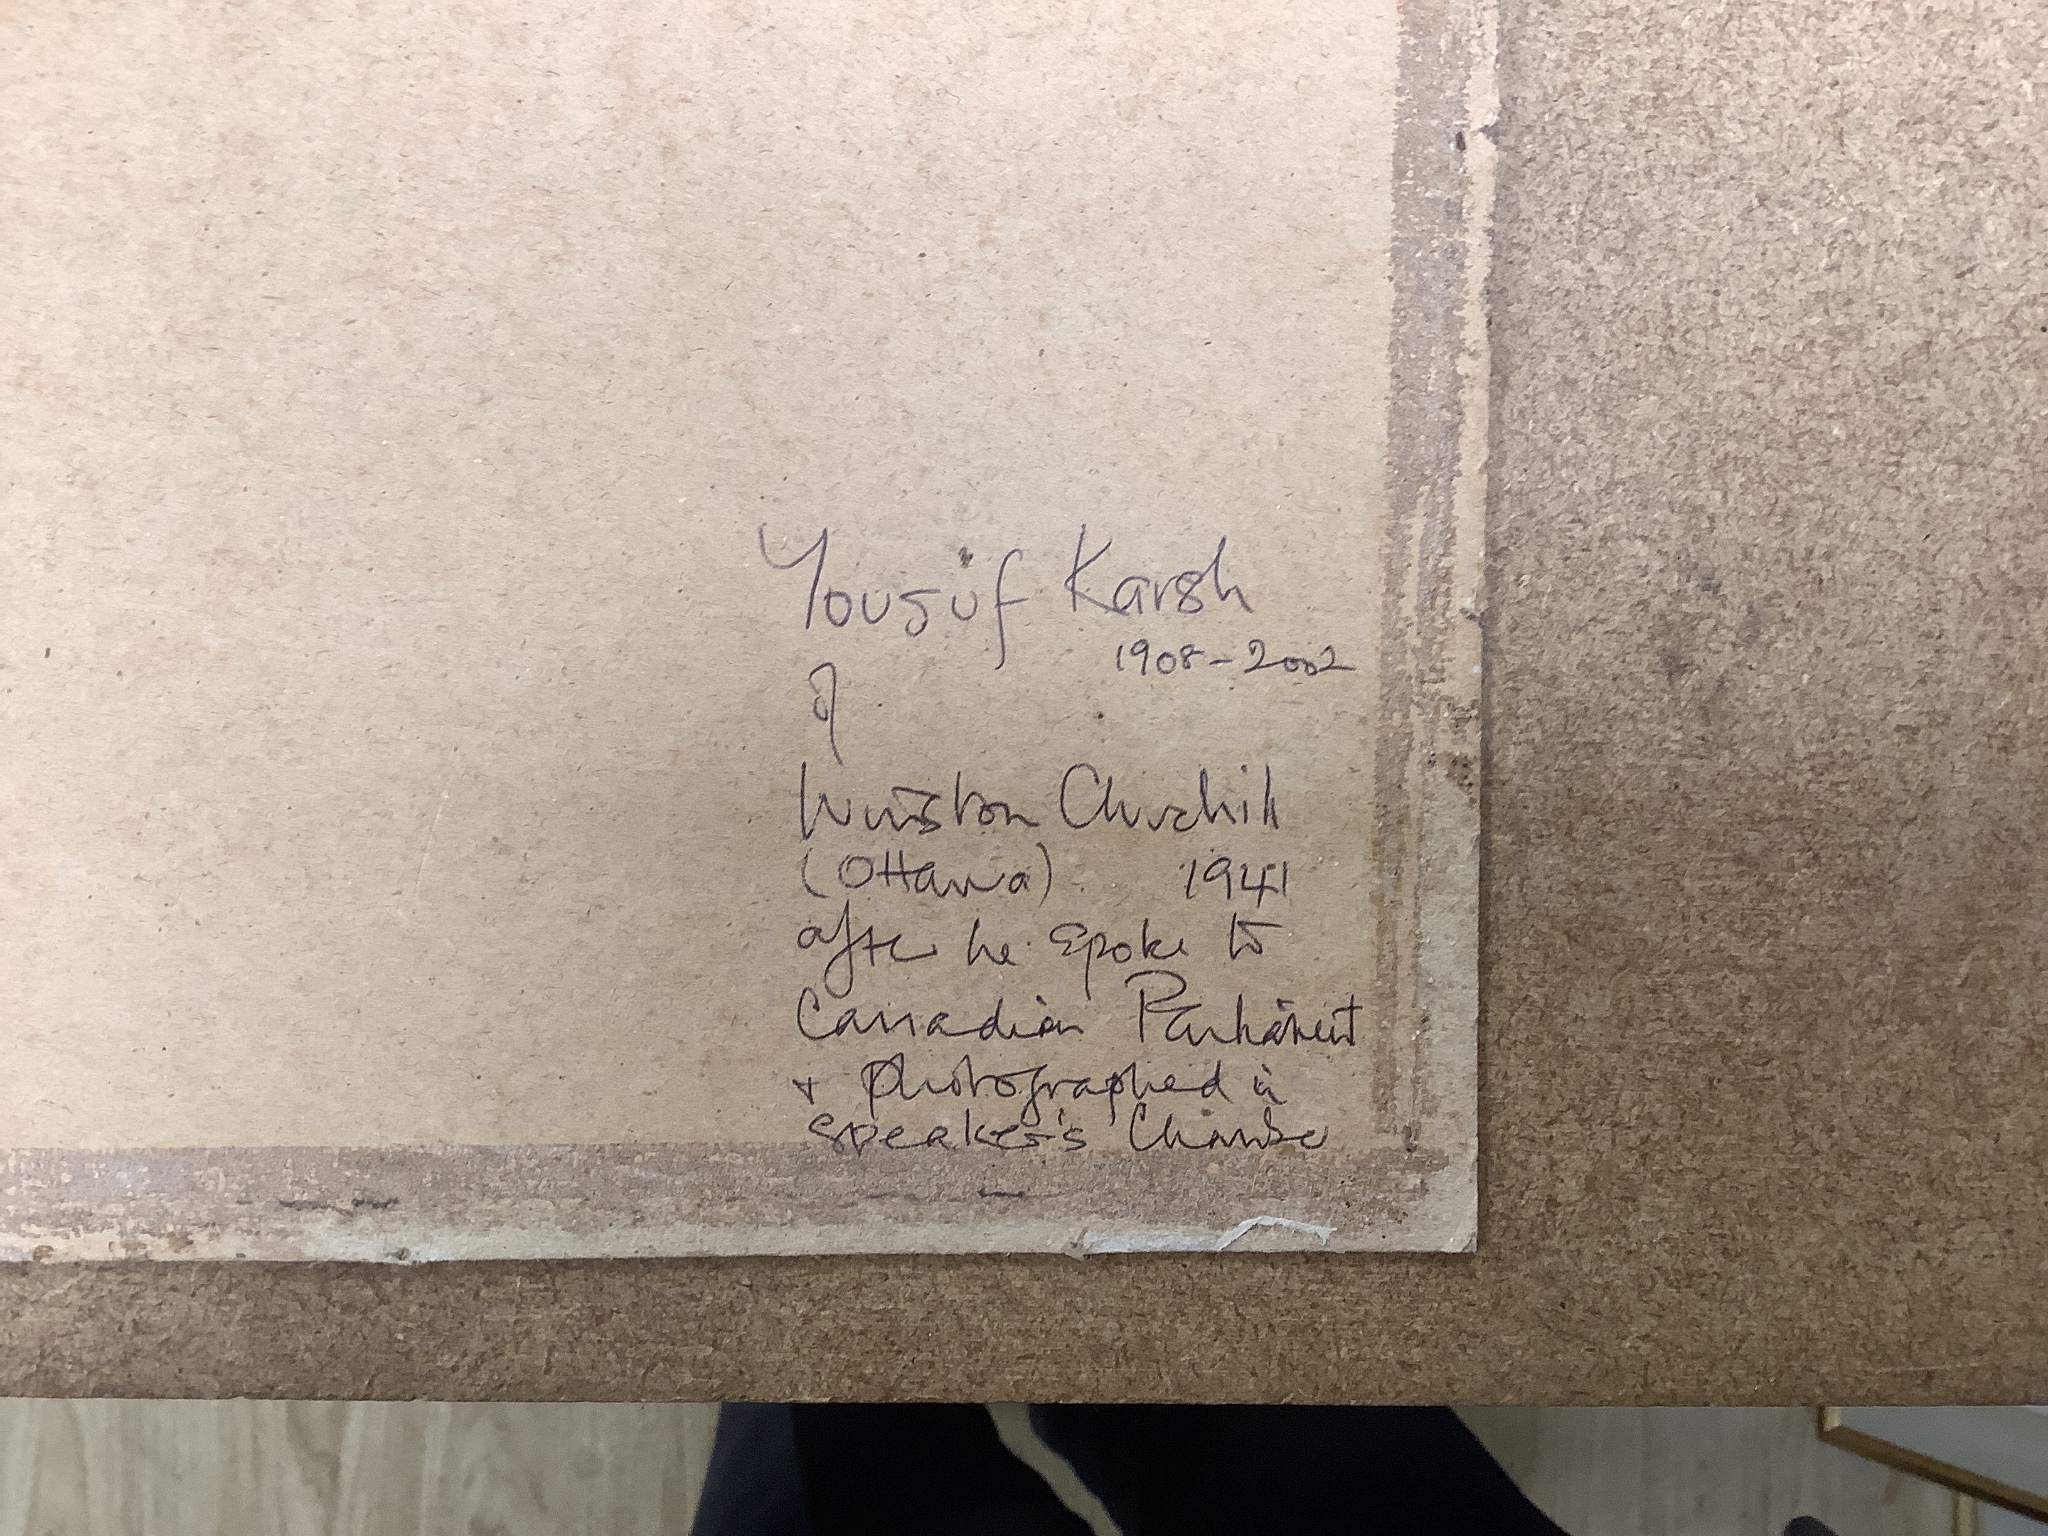 Yousuf Karsh
1908-2002
of
Winston Churchill
(Ottawa) 1941
after he spoke to
Canadian Parliament
+ photographed in
Speaker's Chamber